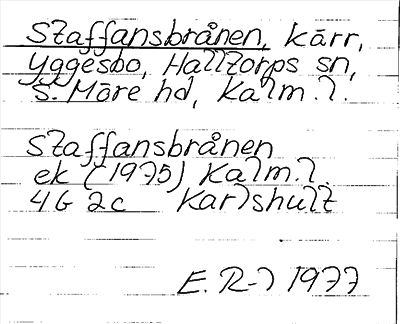 Staffansbrånen, kärr,
Yggesbo, Halltorps sn,
S. Möre hd, Kalm. l.
Staffansbrånen
ek (1975) Kalm. l.
4 G 2c Karlshult
E. R-l 1977